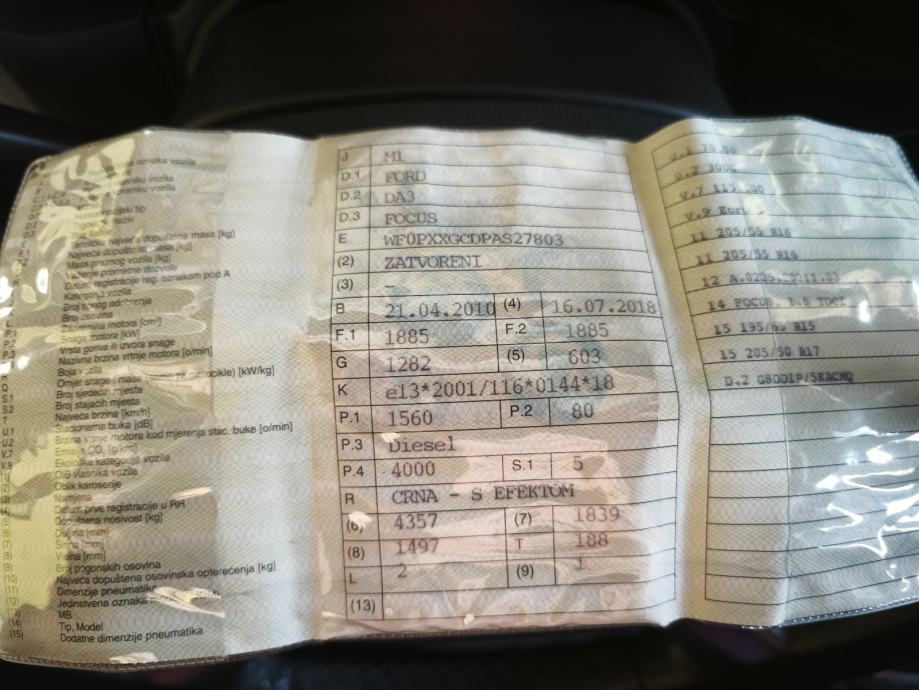 oznaka vozila
vozila
vozila
tip
naziv
Tehnički najveća dopuštena masa [kg]
Najveća dopuštena masa [kg]
Masa praznog vozila [kg]
Važenje prometne dozvole
Datum registracije reg. oznakom pod A
Kategorija vozila
Broj odobrenja
Broj osovina
motora [cm³]
P.2 Snaga motora [kW]
P.3 Vrsta goriva ili izvora snage
Nazivna brzina vrtnje motora [o/min]
R Boja vozila
Q Omjer snage i mase motocikle) [kW/kg]
S.1 Broj sjedećih mjesta
S.2 Broj stajaćih mjesta
T Najveća brzina [km/h]
U.1 Stacionarna buka [dB]
U.2 Brzina vrtnje motora kod mjerenja stac. buke [o/min]
V.7 Emisija CO₂ [g/km]
V.9 Ekološka kategorija vozila
(1) OIB vlasnika vozila
(2) Oblik karoserije
(3) Namjena
(4) Datum prve registracije u RH
(5) Dopuštena nosivost [kg]
(6) Duljina [mm]
(7) Širina [mm]
(8) Visina [mm]
(9) Broj pogonskih osovina
(10) Najveća dopuštena osovinska opterećenja [kg]
(11) Dimenzije pneumatika
(12) Jedinstvena oznaka
(13) MB
(14) Tip, Model
(15) Dodatne dimenzije pneumatika
J M1
D.1 FORD
D.2 DA3
D.3 FOCUS
E WF0PXXGCDPAS27803
(2) ZATVORENI
(3) -
B 21.04.2010 (4) 16.07.2018
F.1 1885 F.2 1885
G 1282 (5) 603
K e13*2001/116*0144*18
P.1 1560 P.2 80
P.3 Diesel
P.4 4000 S.1 5
R CRNA - S EFEKTOM
(6) 4357 (7) 1839
(8) 1497 T 188
L 2 (9) 1
(13)
U.1 79.00
U.2 3000
V.7 115.00
V.9 Euro
11 205/55 R16
11 205/55 R16
12
14 FOCUS 1.6 TDCI
15 195/65 R15
15 205/50 R17
D.2 G8DD1P/5KACMQ